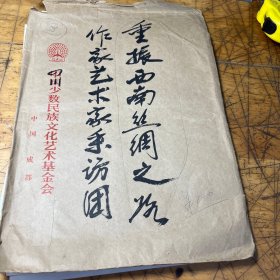 重振西南丝绸之路
作家艺术家采访团
四川少数民族文化艺术基金会
中国 成都